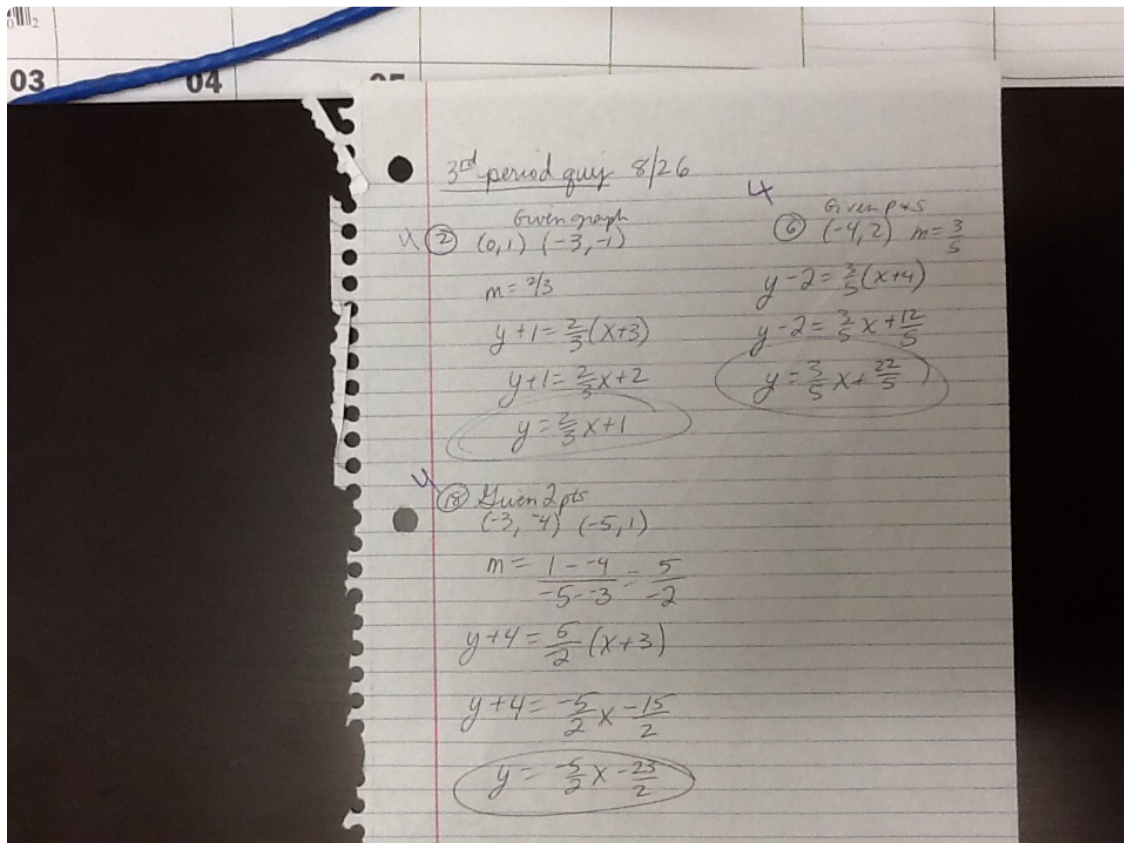 02
03
04
05
3rd period quiz 8/26
4
Given graph
② (0,1) (-3,-1)
m = 2/3
y+1 = 2/3 (x+3)
y+1 = 2/3 x+2
y = 2/3 x+1
4
Given p & s
⑥ (-4,2) m = 3/5
y-2 = 3/5 (x+4)
y-2 = 3/5 x + 12/5
y = 3/5 x + 22/5
4
⑱ Given 2 pts
(-3, -4) (-5, 1)
m = 1 - -4 / -5 - -3 = 5 / -2
y+4 = 5/2 (x+3)
y+4 = -5/2 x -15/2
y = -5/2 x -23/2